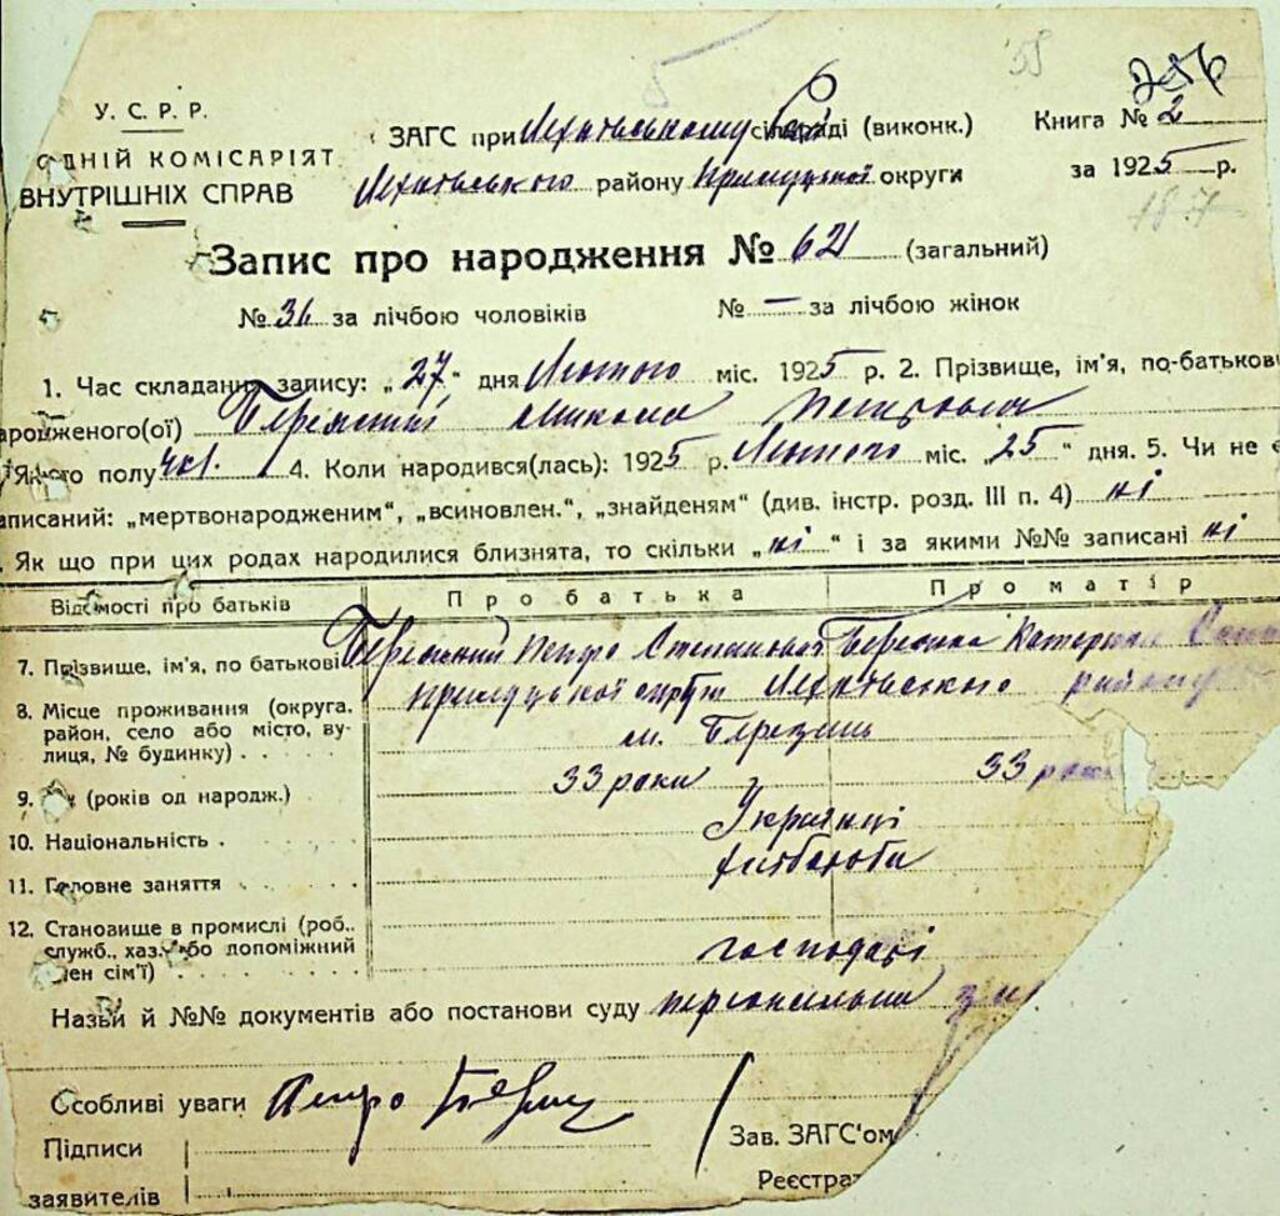 58
256
У. С. Р. Р.
ОДНІЙ КОМІСАРІЯТ
ВНУТРІШНІХ СПРАВ
ЗАГС при сільраді (виконк.)
Книга № 2
району Прилуцької округи
за 1925 р.
187
Запис про народження № 621 (загальний)
№ 36 за лічбою чоловіків № — за лічбою жінок
1. Час складання запису: „27“ дня Лютого міс. 1925 р. 2. Прізвище, ім'я, по-батькові
ародженого(ої) Микола Петрович
Якого полу чол. 4. Коли народився(лась): 1925 р. Лютого міс. „25“ дня. 5. Чи не є
аписаний: „мертвонародженим“, „всиновлен.“, „знайденям“ (див. інстр. розд. III п. 4) ні
. Як що при цих родах народилися близнята, то скільки „ні“ і за якими №№ записані ні
Відомості про батьків Про батька Про матір
7. Прізвище, ім'я, по батькові Петро Степанович Катерина
8. Місце проживання (округа, район, село або місто, вулиця, № будинку) Прилуцької округи району
м. Березань
9. Вік (років од народж.) 33 роки 33 роки
10. Національність Українці
11. Головне заняття хлібороби
12. Становище в промислі (роб.,
служб., хаз. або допоміжний
член сім'ї) господарі
Назви й №№ документів або постанови суду персональна
Особливі уваги Петро
Підписи
заявителів
Зав. ЗАГС'ом
Реєстра